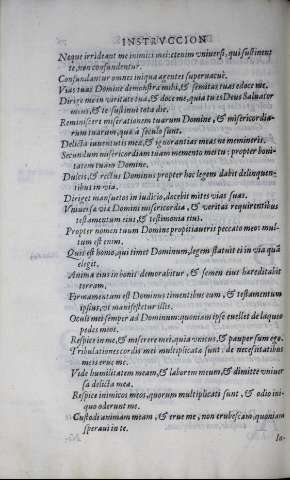 INSTRVCCION
Neque irrideant me inimici mei: etenim vniuersi, qui sustinent
te, non confundentur.
Confundantur omnes iniqua agentes superuacuè.
Vias tuas Domine demonstra mihi, & semitas tuas edoce me.
Dirige me in veritate tua, & doce me, quia tu es Deus Saluator
meus, & te sustinui tota die.
Reminiscere miserationem tuarum Domine, & misericordia-
rum tuarum, quæ à sæculo sunt.
Delicta iuuentutis meæ, & ignorantias meas ne memineris.
Secundum misericordiam tuam memento mei tu: propter boni-
tatem tuam Domine.
Dulcis, & rectus Dominus propter hoc legem dabit delinquen-
tibus in via.
Diriget mansuetos in iudicio, docebit mites vias suas.
Vniuersæ viæ Domini misericordia, & veritas requirentibus
testamentum eius, & testimonia eius.
Propter nomen tuum Domine propitiaueris peccato meo: mul-
tum est enim.
Quis est homo, qui timet Dominum, legem statuit ei in via quã
elegit.
Anima eius in bonis demorabitur, & semen eius hæreditabit
terram.
Firmamentum est Dominus timentibus eum, & testamentum
ipsius, vt manifestetur illis.
Oculi mei semper ad Dominum: quoniam ipse euellet de laqueo
pedes meos.
Respice in me, & miserere mei, quia vnicus, & pauper sum ego.
Tribulationes cordis mei multiplicatæ sunt: de necessitatibus
meis erue me.
Vide humilitatem meam, & laborem meum, & dimitte vniuer
sa delicta mea.
Respice inimicos meos, quoniam multiplicati sunt, & odio ini-
quo oderunt me.
Custodi animam meam, & erue me, non erubescam, quoniam
speraui in te.